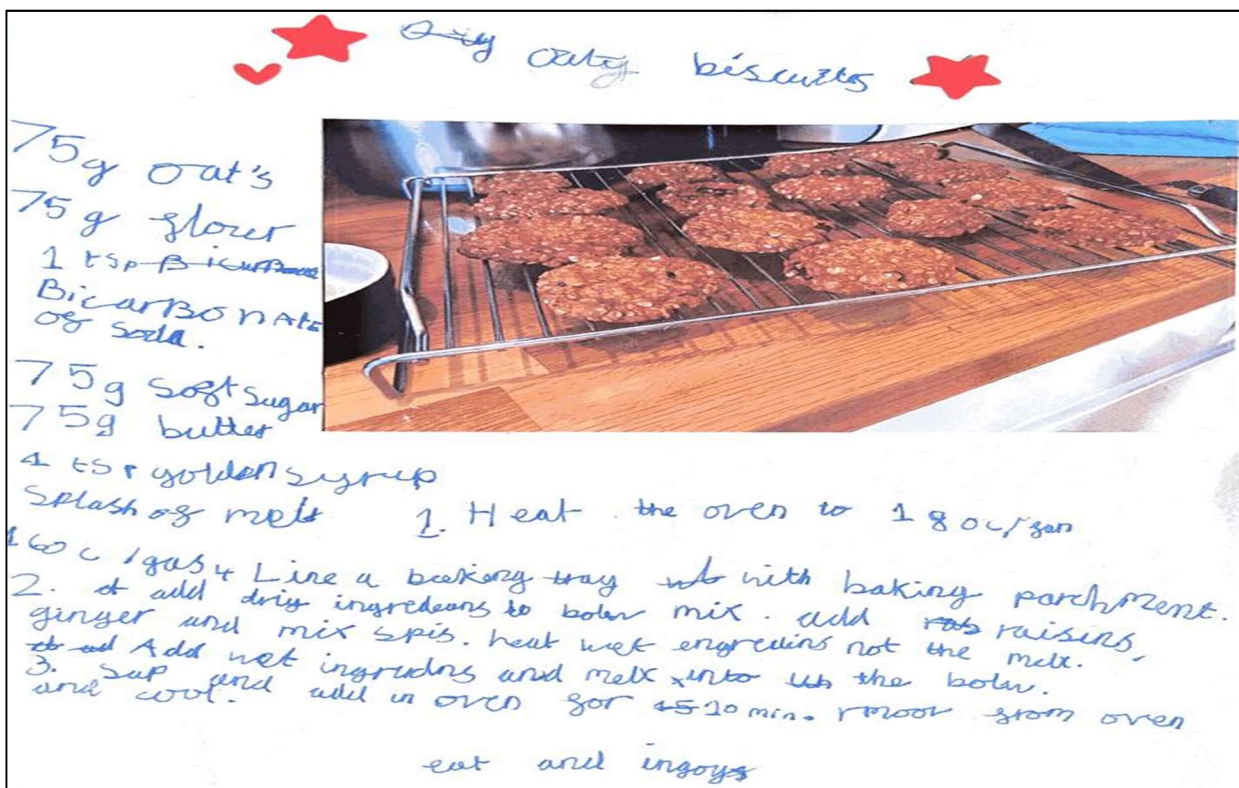 Oaty biscuits
75g oat's
75g flour
1 tsp
BicarBonAte
of soda.
75g soft sugar
75g butter
1 tsp golden syrup
Splash of melk
1. Heat the oven to 180c/gan
160c/gas 4 Line a baeking tray with baking parchment.
2. add driy ingredeans to bolw mix. add raisins,
ginger and mix spis. heat wet engredins not the melk.
Add wet ingrudns and melk into the bolw.
3. Sap and add in oven for 10 min. rmoov from oven
and cool.
eat and ingoys